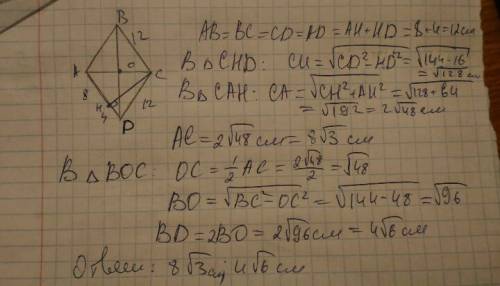 B
12
A
O
C
8
H
4
12
D
AB=BC=CD=AD=AH+HD=8+4=12см
В △CHD: CH=√CD²-HD²=√144-16
=√128 см
В △CAH: CA=√CH²+AH²=√128+64
=√192=2√48 см
AC=2√48 см=8√3 см
В △BOC: OC=1/2 AC=2√48/2=√48
BO=√BC²-OC²=√144-48=√96
BD=2BO=2√96 см=4√6 см
Ответ: 8√3 см; 4√6 см